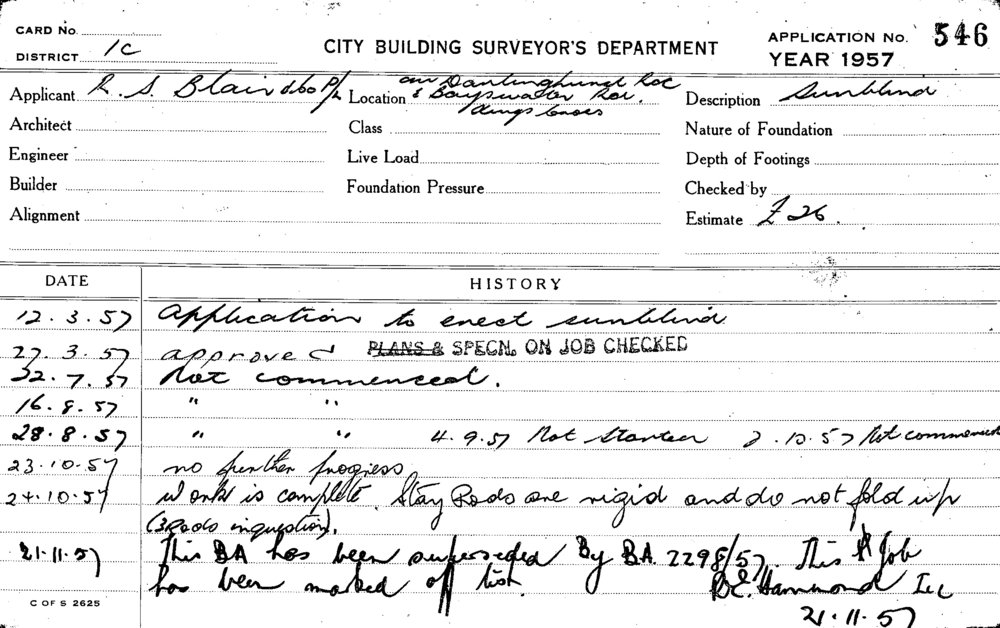 CARD No.
DISTRICT 1C
CITY BUILDING SURVEYOR'S DEPARTMENT
APPLICATION No. 546
YEAR 1957
Applicant R. S. Blair & Co P/L
Location cnr Darlinghurst Rd
& Bayswater Rd.
Kings Cross
Description Sunblind
Architect
Class
Nature of Foundation
Engineer
Live Load
Depth of Footings
Builder
Foundation Pressure
Checked by
Alignment
Estimate £ 26.
DATE HISTORY
12.3.57 Application to erect sunblind
27.3.57 approved PLANS & SPECN. ON JOB CHECKED
22.7.57 Not commenced.
16.8.57 " "
28.8.57 " " 4.9.57 Not Started 2.10.57 Not commenced
23.10.57 no further progress
24.10.57 Work is complete. Stay Rods are rigid and do not fold up
(3 Rods in question).
21.11.57 This BA has been superseded By B.A. 2298/57. This Job
has been marked off list. Hammond
21.11.57
C OF S 2625